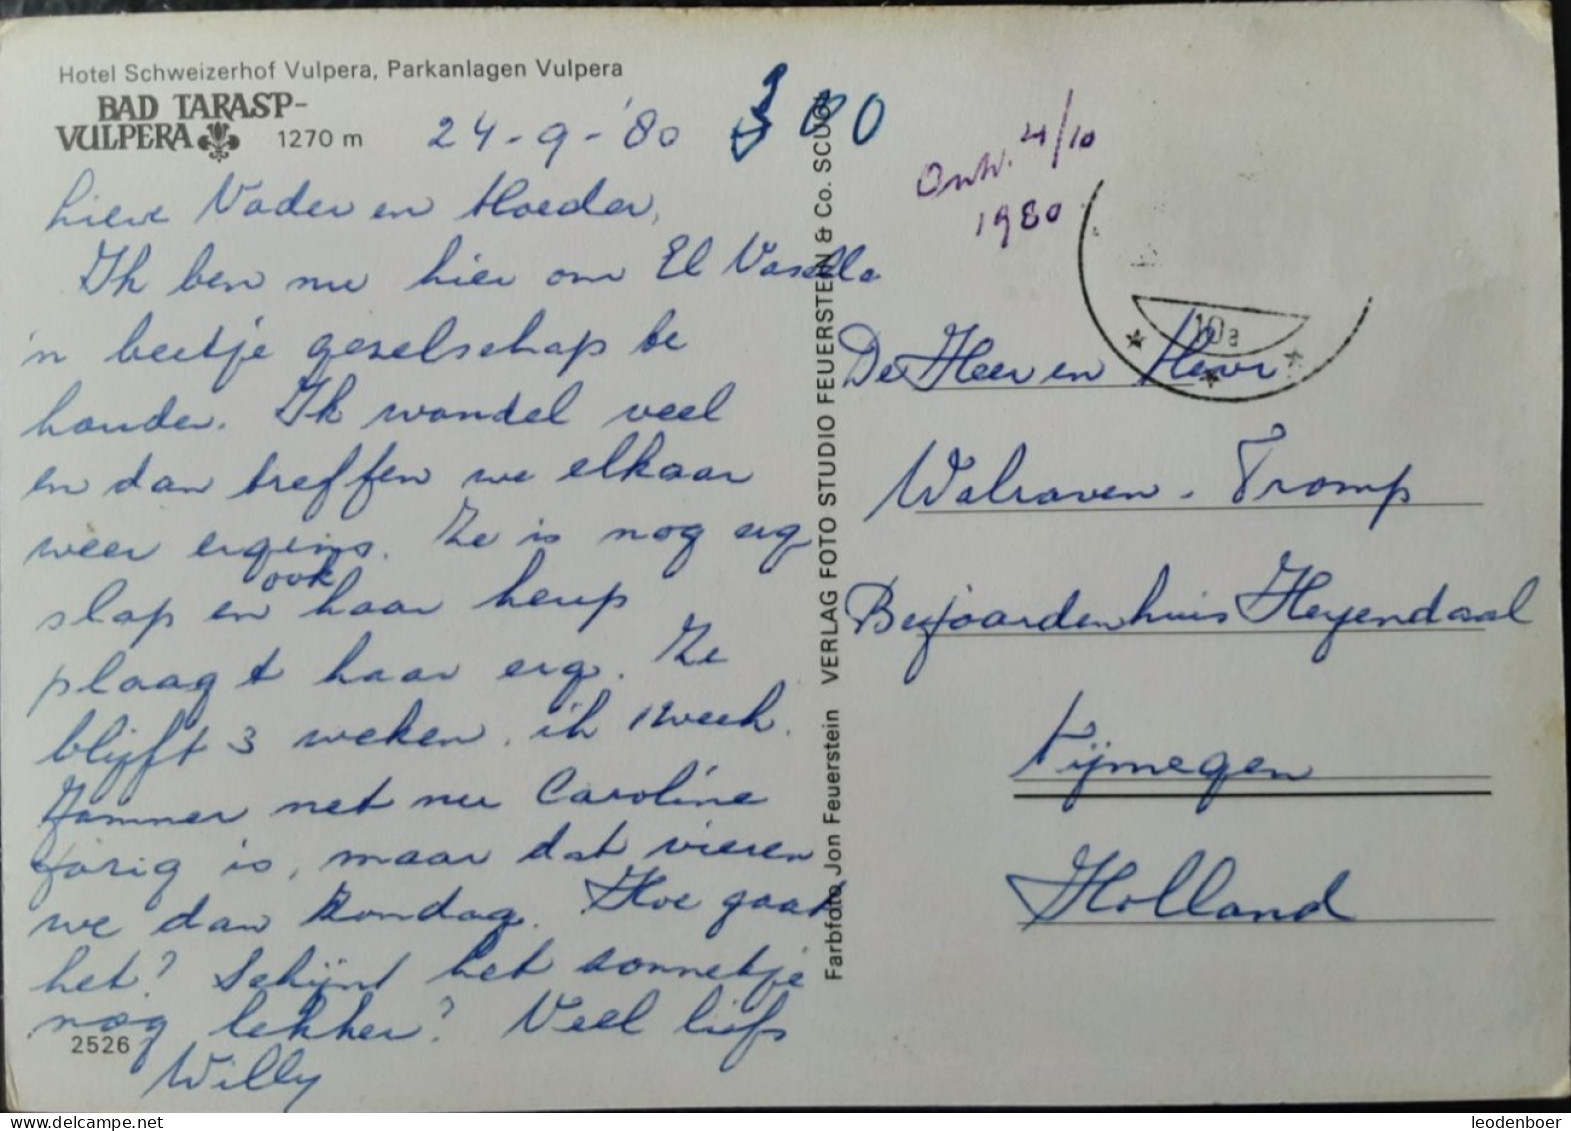 Hotel Schweizerhof Vulpera, Parkanlagen Vulpera
BAD TARASP-
VULPERA 1270 m
24-9-'80
lieve Vader en Moeder,
Ik ben nu hier om El
'n beetje gezelschap te
houden. Ik wandel veel
en dan treffen we elkaar
weer ergens. Ze is nog erg
slap en ook haar heup
plaagt haar erg. Ze
blijft 3 weken, ik 1 week.
Jammer net nu Caroline
jarig is, maar dat vieren
we dan Zondag. Hoe gaat
het? Schijnt het zonnetje
nog lekker? Veel liefs
Willy
2526
VERLAG FOTO STUDIO FEUERSTEIN & Co. SCUOL
Farbfoto Jon Feuerstein
Antw. 4/10
1980
10a
De Heer en Mevr
Walraven-Tromp
Bejaardenhuis Heyendaal
Nijmegen
Holland
leodenboer